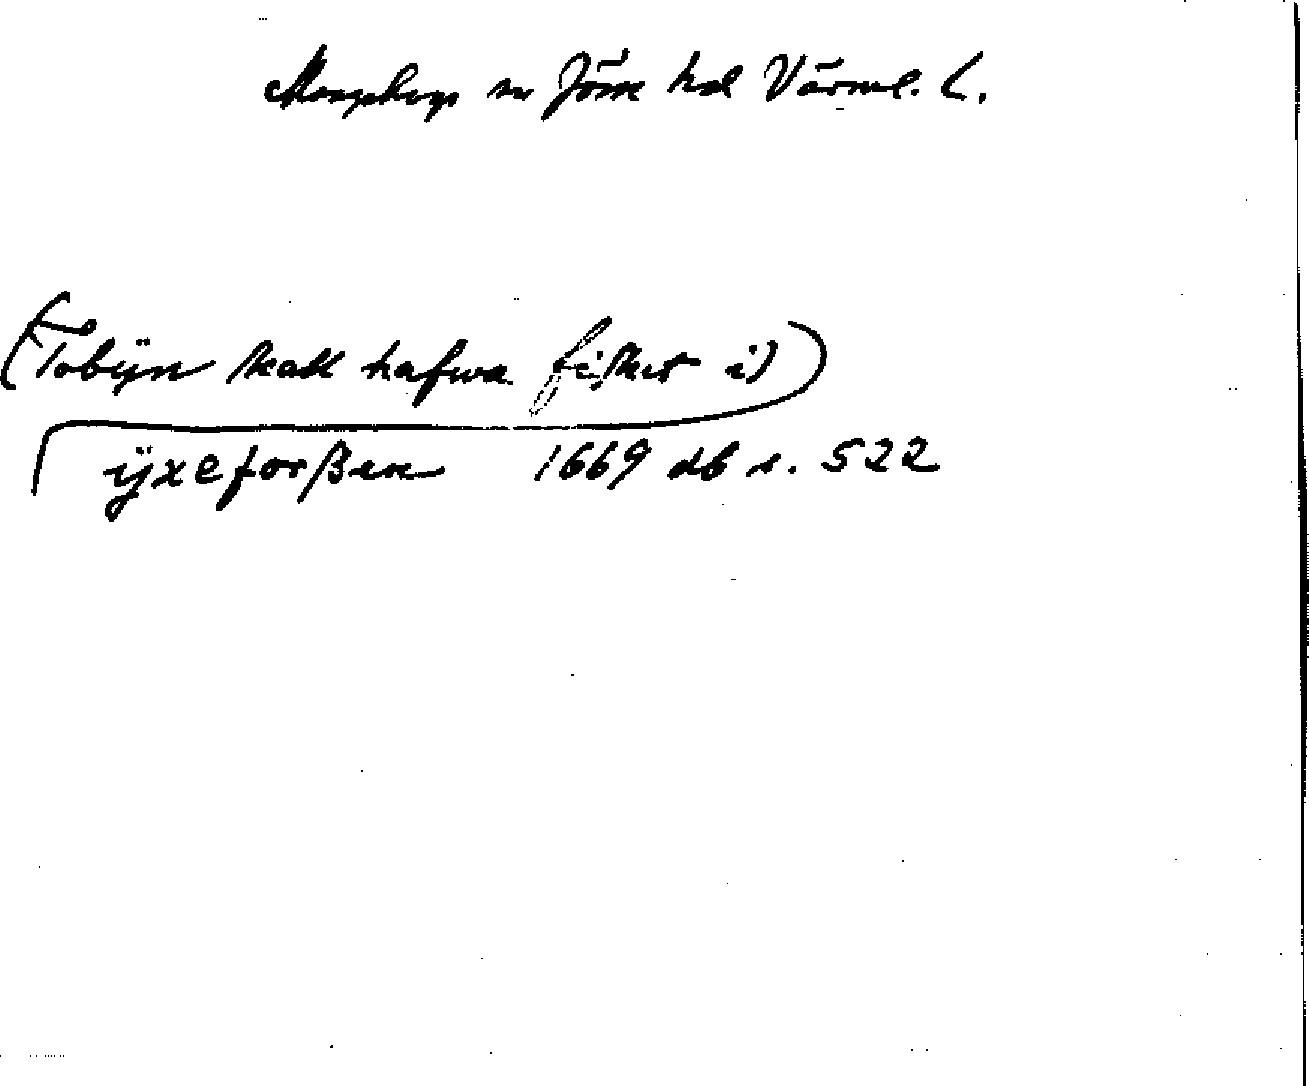 Mangskogs sn Jösse hd Värml. L.
(Tobijn skall hafwa fisket i)
ijxeforßen 1669 db s. 522